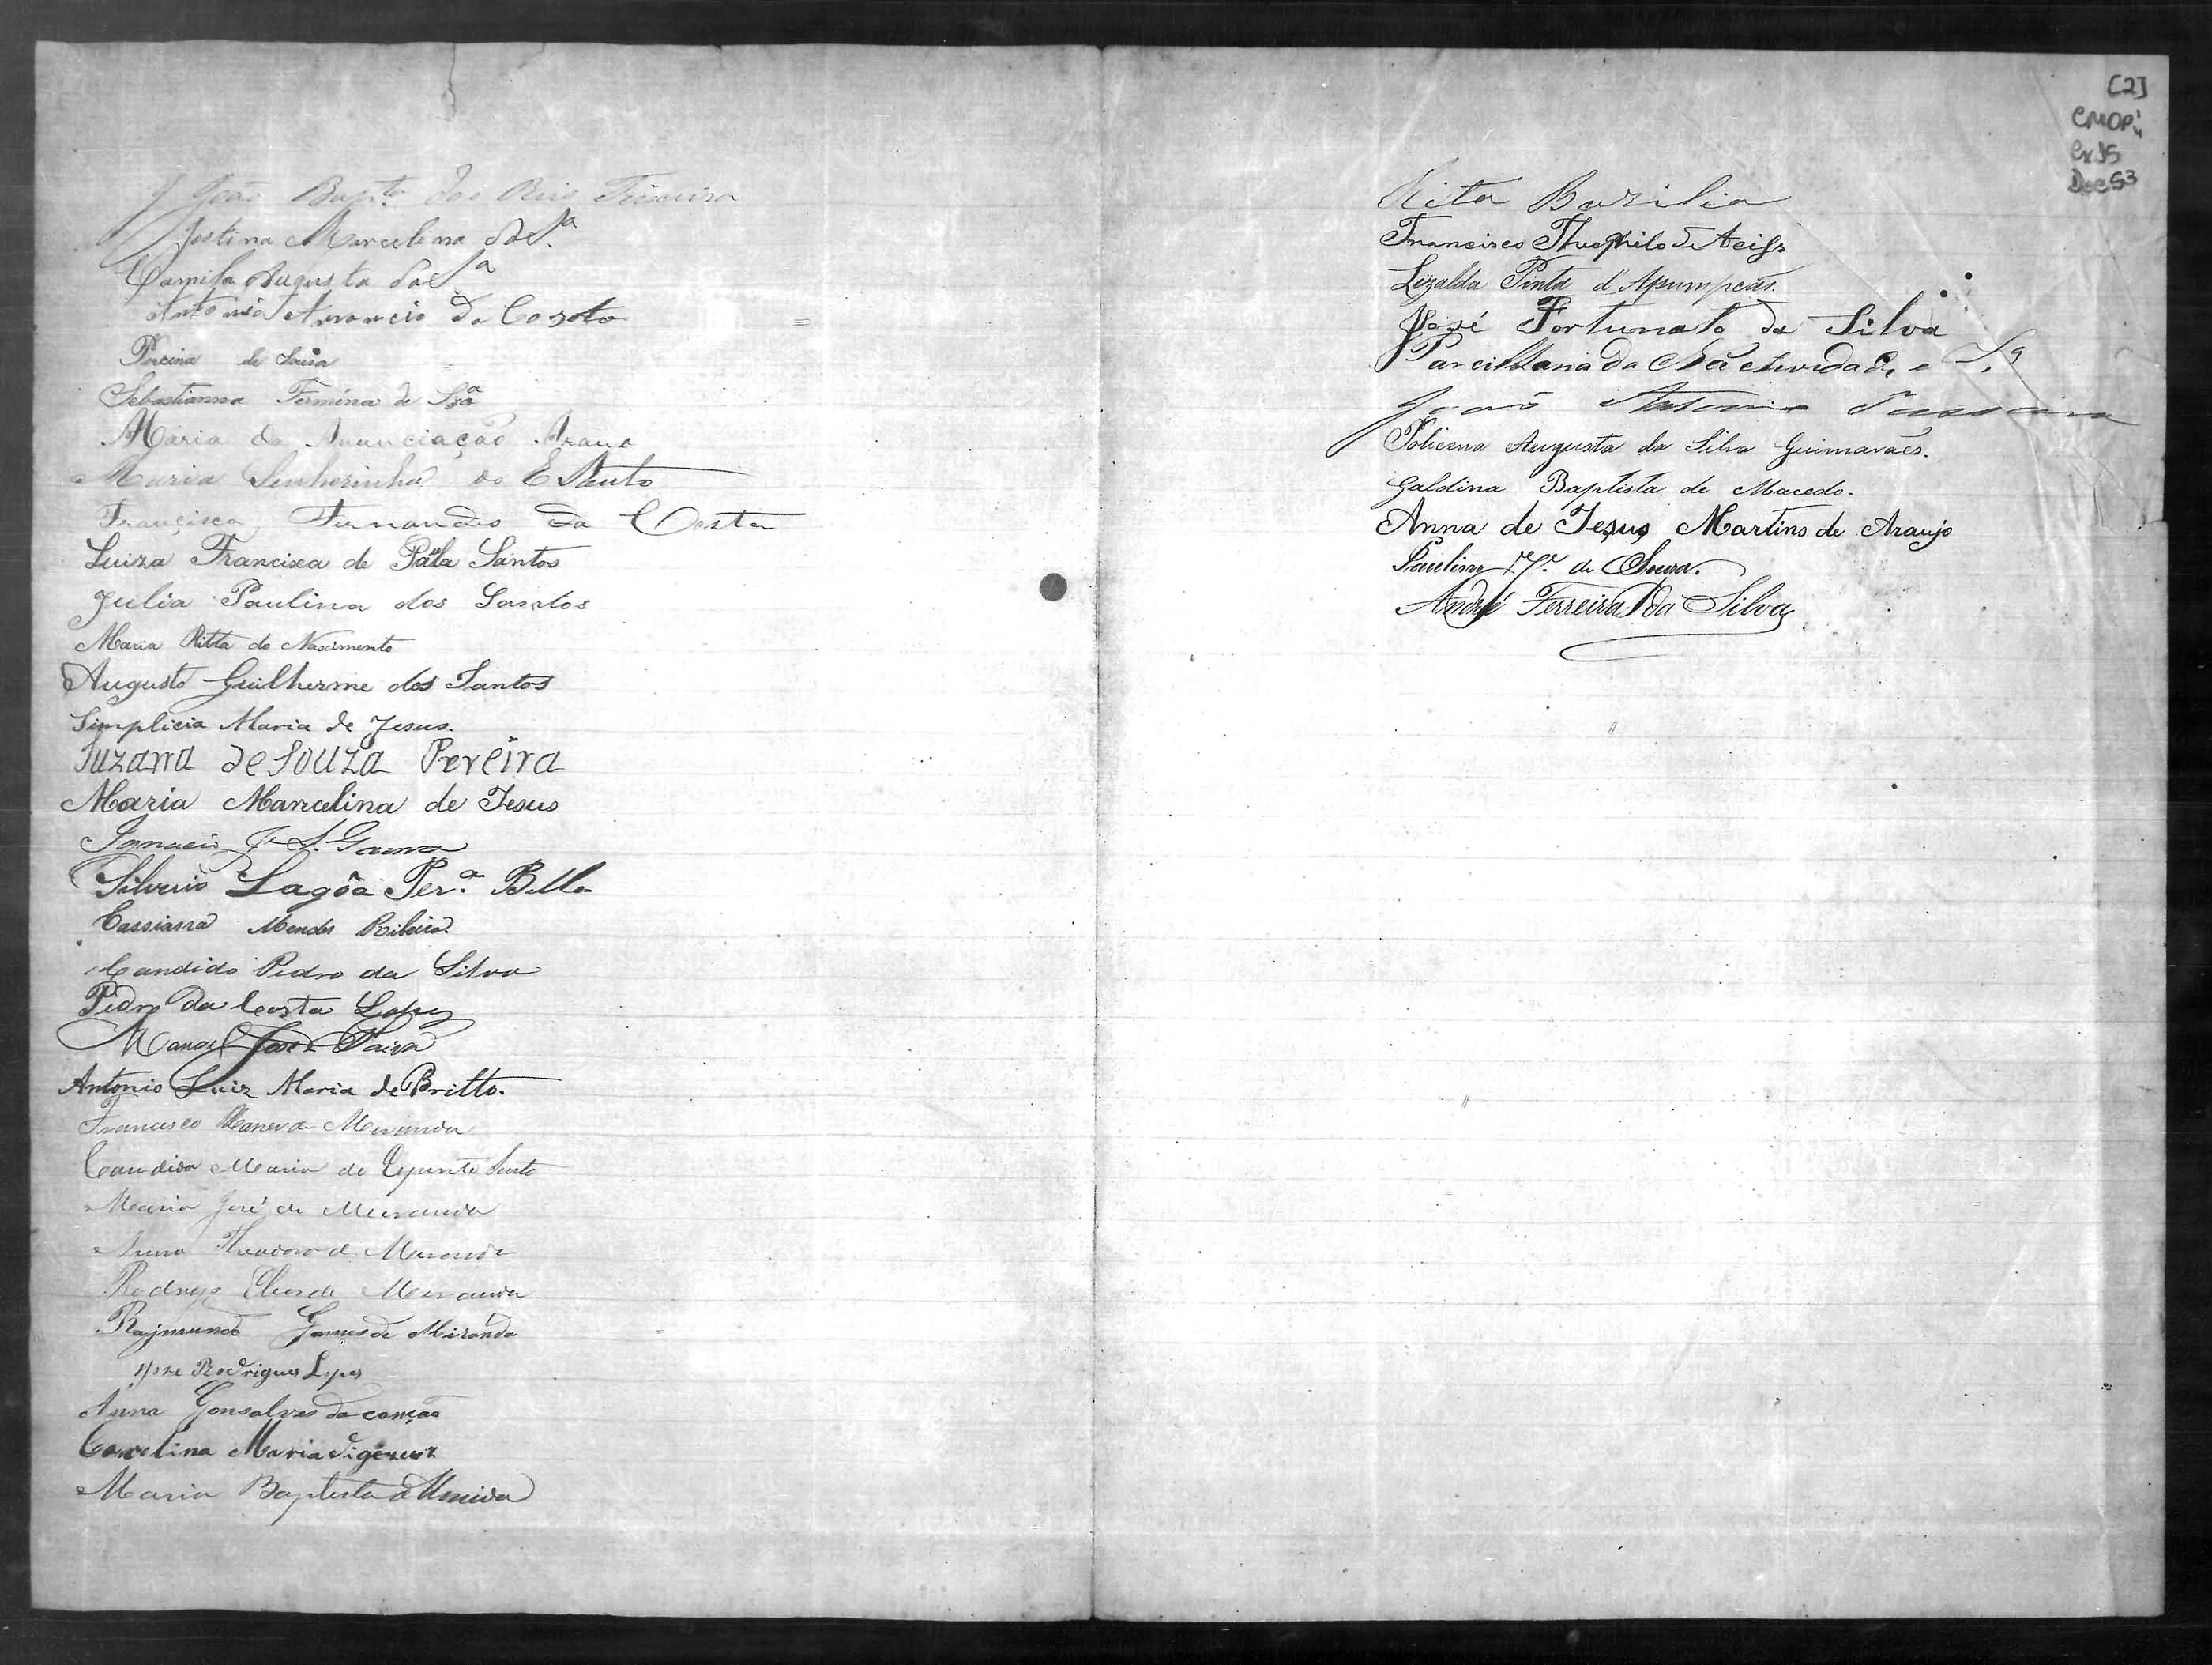 João Bapt.ta dos Reis Teixeira
Justina Marcelina da S.a
Camila Augusta da S.a
Antonio Amancio da Costa
Porcina de Souza
Sebastianna Fermina de Sza
Maria da Anunciação
Maria Senhorinha do E Santo
Francisca Fernandes da Costa
Luiza Francisca de Paula Santos
Julia Paulina dos Santos
Maria Ritta do Nascimento
Augusto Guilherme dos Santos
Simplicia Maria de Jesus.
Suzana de Souza Pereira
Maria Marcelina de Jesus
Ignacio J. S. Gama
Silverio Lagôa Per.a Bello
Cassiana Mendes Ribeiro
Candido Pedro da Silva
Pedro da Costa Lopes
Manoel José Paiva
Antonio Luiz Maria de Britto.
Francisco de Meranda
Candida Maria do Espirito Santo
Maria José de Meranda
Anna Theodora de Meranda
Rodrigo de Meranda
Raymundo Gomes de Miranda
Jose Rodrigues Lopes
Anna Gonsalves da conção
Carolina Maria digezus
Maria Baptista d'Almeida
[2]
CMOP
Cx 15
Doc 53
Rita Bazilia
Francisco Theophilo de
Lizalda Pinta d'
José Fortunato da Silva
da e S.a
João Antonio
Policena Augusta da Silva Guimarães.
Galdina Baptista de Macedo.
Anna de Jesus Martins de Araujo
de Souza.
André Ferreira da Silva